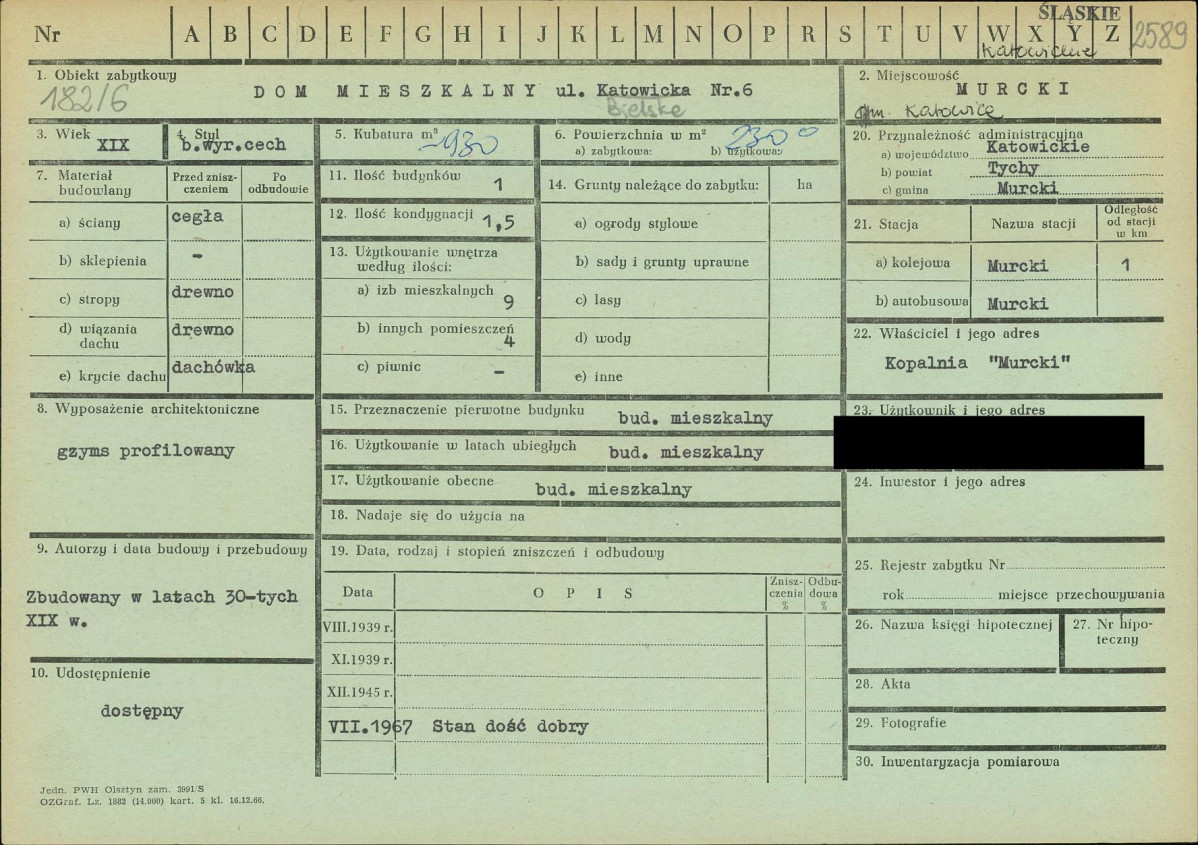 ŚLĄSKIE
Nr A B C D E F G H I J K L M N O P R S T U V W X Y Z 2589
Katowickie
1. Obiekt zabytkowy
182/6
DOM MIESZKALNY ul. Katowicka Nr.6
Bielska
2. Miejscowość
MURCKI
gm. Katowice
3. Wiek
XIX
4. Styl
b.wyr.cech
5. Kubatura m³
~930
6. Powierzchnia w m²
a) zabytkowa: b) użytkowa:
230
7. Materiał budowlany
Przed zniszczeniem
Po odbudowie
a) ściany cegła
b) sklepienia -
c) stropy drewno
d) wiązania dachu drewno
e) krycie dachu dachówka
11. Ilość budynków 1
12. Ilość kondygnacji 1,5
13. Użytkowanie wnętrza
według ilości:
a) izb mieszkalnych 9
b) innych pomieszczeń 4
c) piwnic -
14. Grunty należące do zabytku: ha
a) ogrody stylowe
b) sady i grunty uprawne
c) lasy
d) wody
e) inne
20. Przynależność administracyjna
a) województwo Katowickie
b) powiat Tychy
c) gmina Murcki
21. Stacja Nazwa stacji
Odległość
od stacji
w km
a) kolejowa Murcki 1
b) autobusowa Murcki
22. Właściciel i jego adres
Kopalnia "Murcki"
8. Wyposażenie architektoniczne
gzyms profilowany
15. Przeznaczenie pierwotne budynku bud. mieszkalny
16. Użytkowanie w latach ubiegłych bud. mieszkalny
17. Użytkowanie obecne bud. mieszkalny
18. Nadaje się do użycia na
23. Użytkownik i jego adres
24. Inwestor i jego adres
9. Autorzy i data budowy i przebudowy
Zbudowany w latach 30-tych
XIX w.
10. Udostępnienie
dostępny
19. Data, rodzaj i stopień zniszczeń i odbudowy
Data OPIS
Znisz-
czenia
%
Odbu-
dowa
%
VIII.1939 r.
XI.1939 r.
XII.1945 r.
VII.1967 Stan dość dobry
25. Rejestr zabytku Nr
rok miejsce przechowywania
26. Nazwa księgi hipotecznej
27. Nr hipo-
teczny
28. Akta
29. Fotografie
30. Inwentaryzacja pomiarowa
Jedn. PWH Olsztyn zam. 3991/S
OZGraf. Lz. 1882 (14.000) kart. 5 kl. 16.12.66.